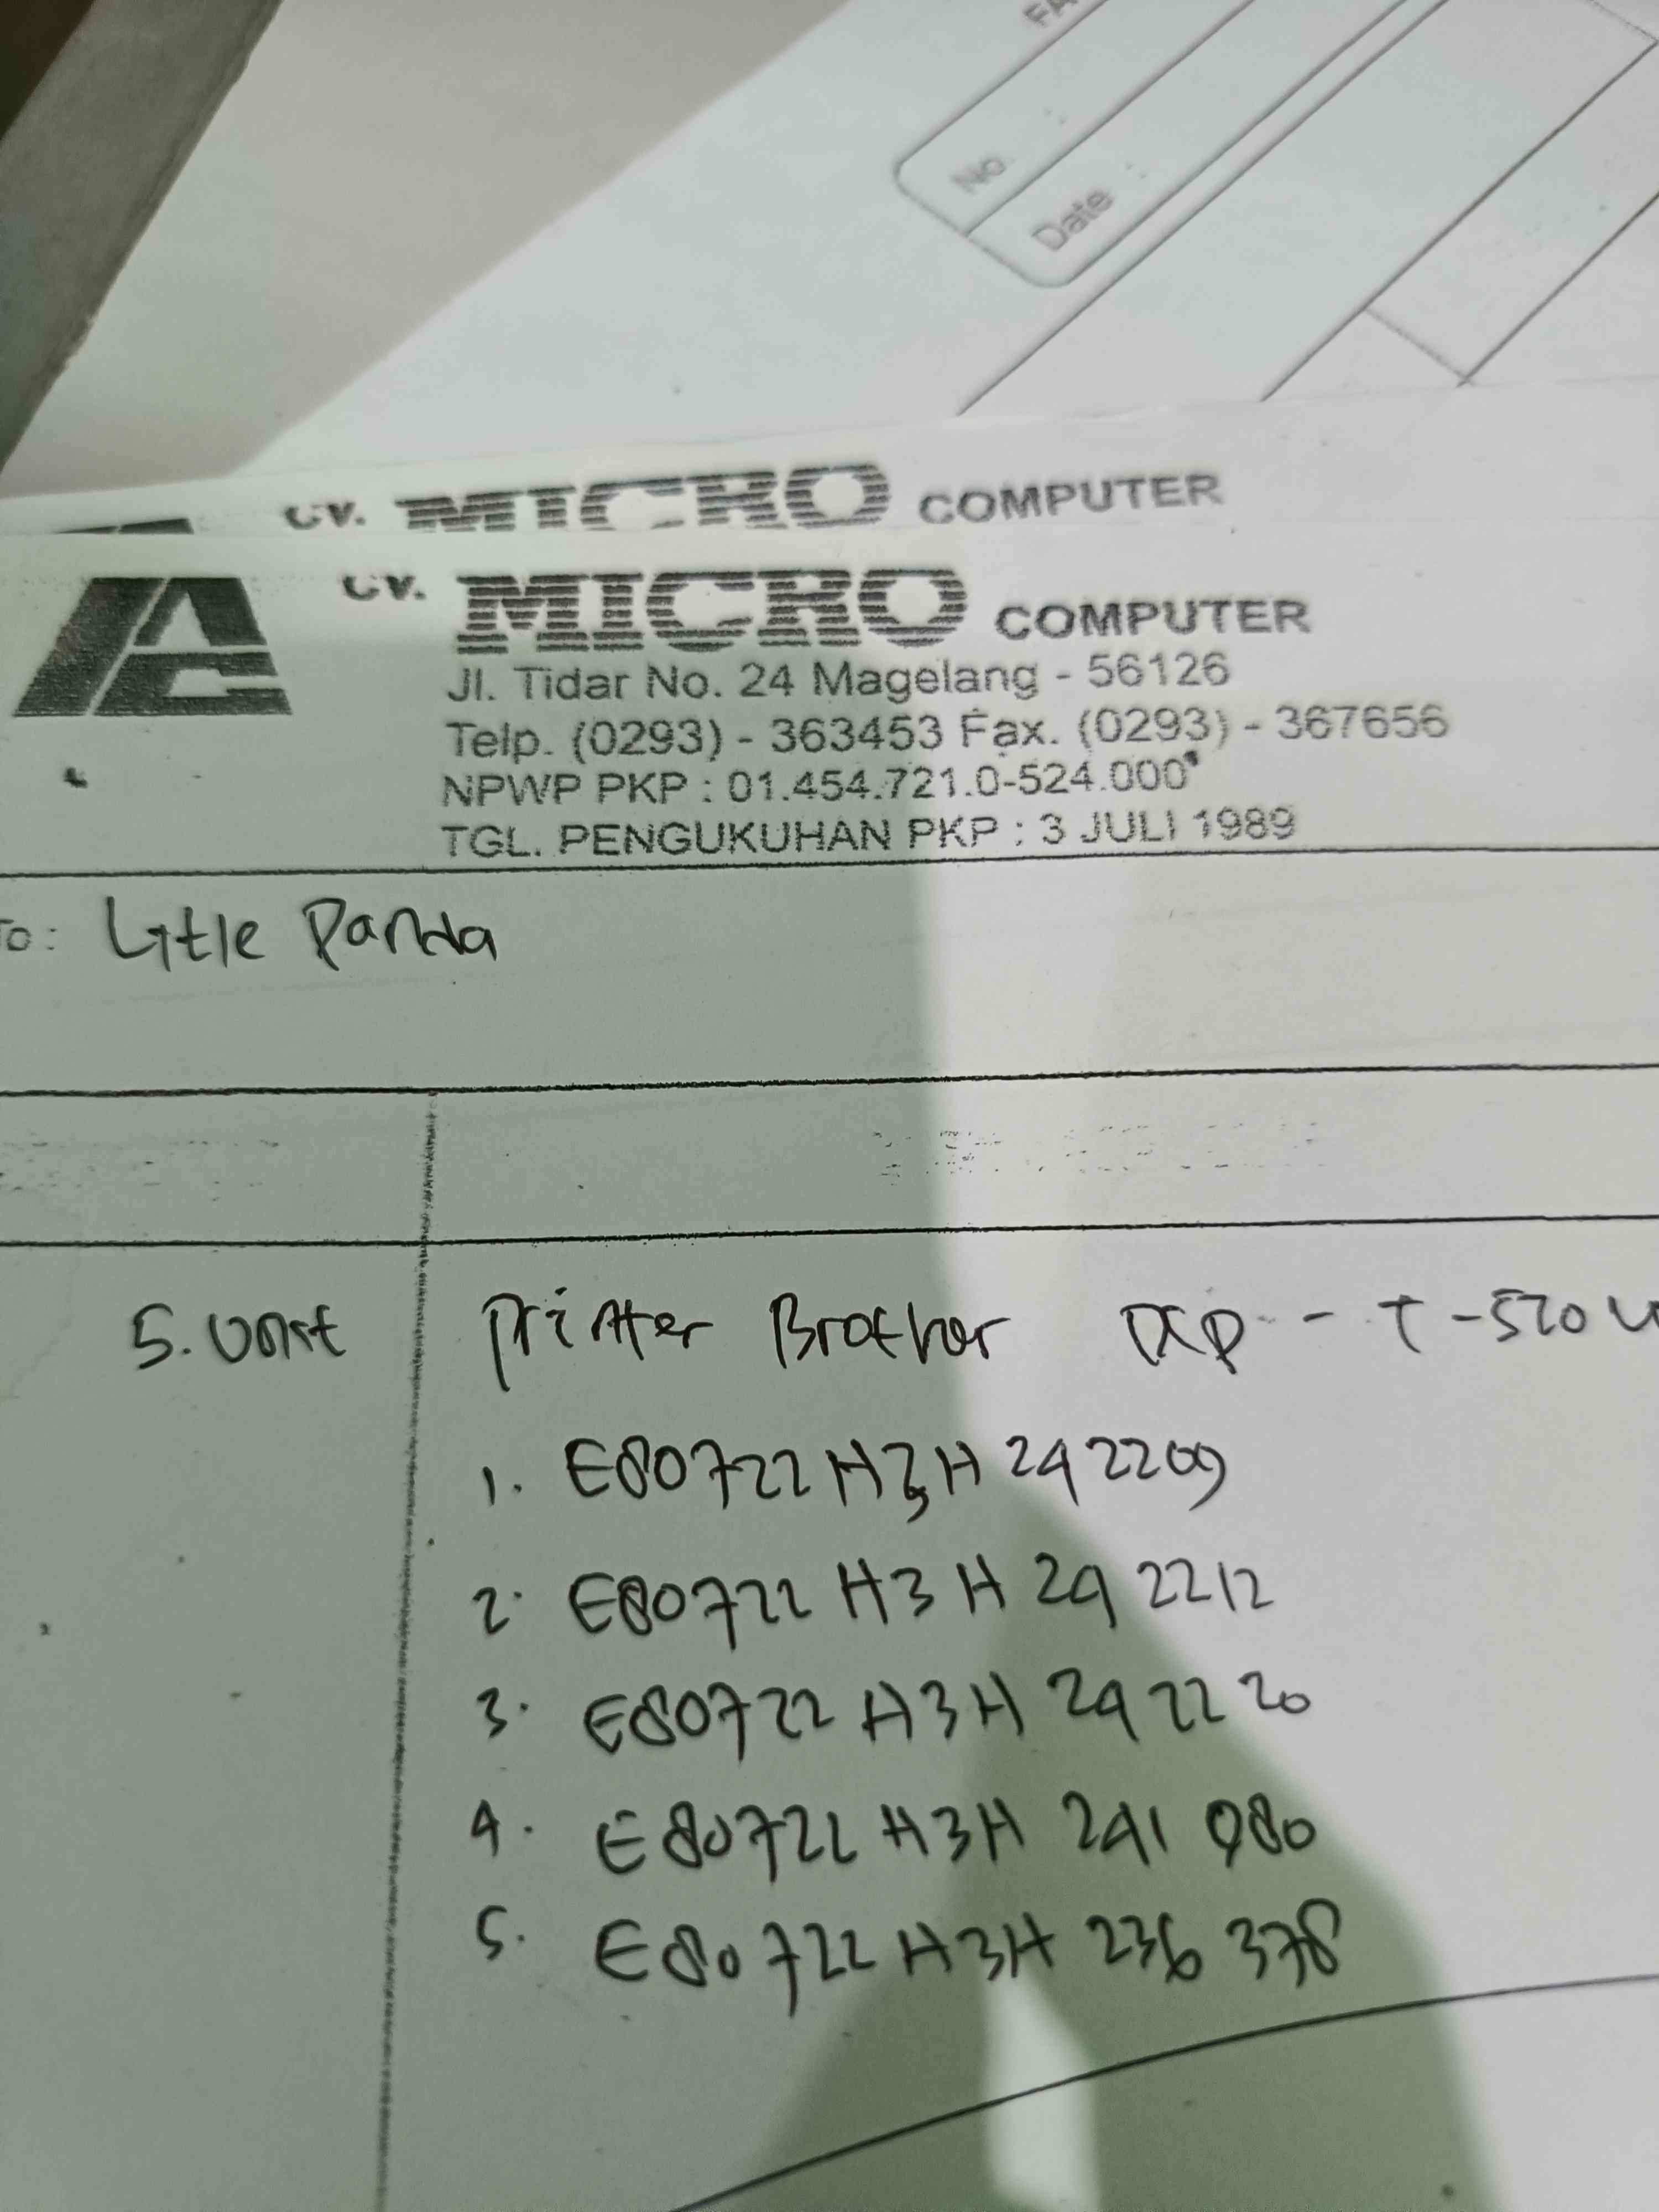 FA
No.
Date :
CV. MICRO COMPUTER
CV. MICRO COMPUTER
Jl. Tidar No. 24 Magelang - 56126
Telp. (0293) - 363453 Fax. (0293) - 367656
NPWP PKP : 01.454.721.0-524.000
TGL. PENGUKUHAN PKP : 3 JULI 1989
To: Litle Panda
5. Unit Printer Brother DCP - T-520 W
1. E80722H3H242209
2. E80722H3H242212
3. E80722H3H242220
4. E80722H3H241980
5. E80722H3H236378